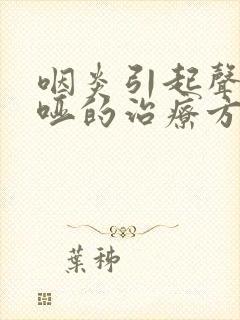 咽炎引起聲
啞的治療方
葉秭